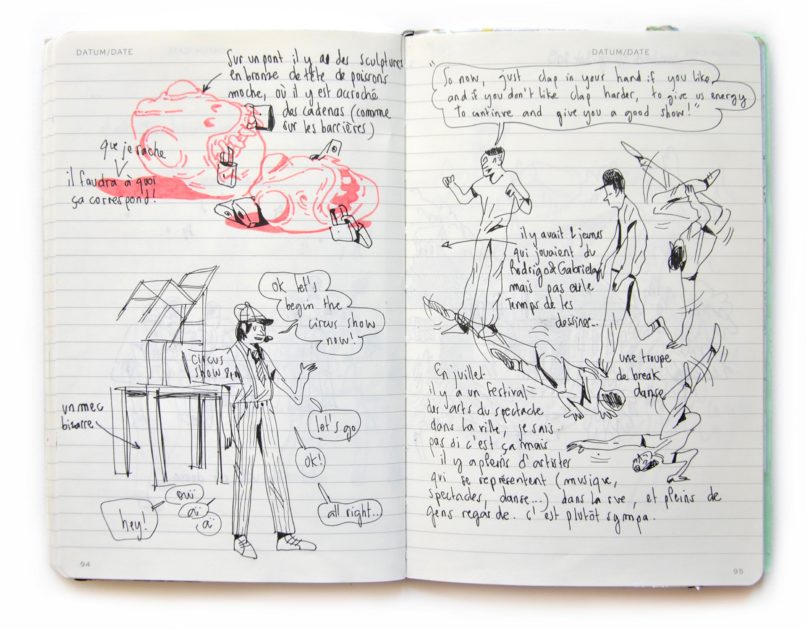 DATUM/DATE
Sur un pont il y a des sculptures
en bronze de tête de poissons
moche, où il y est accroché
des cadenas (comme
sur les barrières)
que je sache
il faudra à quoi
ça correspond!
ok let's
begin the
circus show
now!
CIRCUS
SHOW
un mec
bizarre
let's go
ok!
all right...
oui
oi
oi
hey!
94
DATUM/DATE
"So now, just clap in your hand if you like
and if you don't like clap harder, to give us energy
to continue and give you a good show!"
il y avait 2 jeunes
qui jouaient du
Rodrigo & Gabriela
mais pas eu le
Temps de les
dessiner...
une troupe
de break
danse
En juillet
il y a un festival
des arts du spectacle
dans la ville, je sais
pas si c'est ça mais
il y a pleins d'artistes
qui se représentent (musique,
spectacles, danse...) dans la rue, et pleins de
gens regarde. c'est plutôt sympa.
95